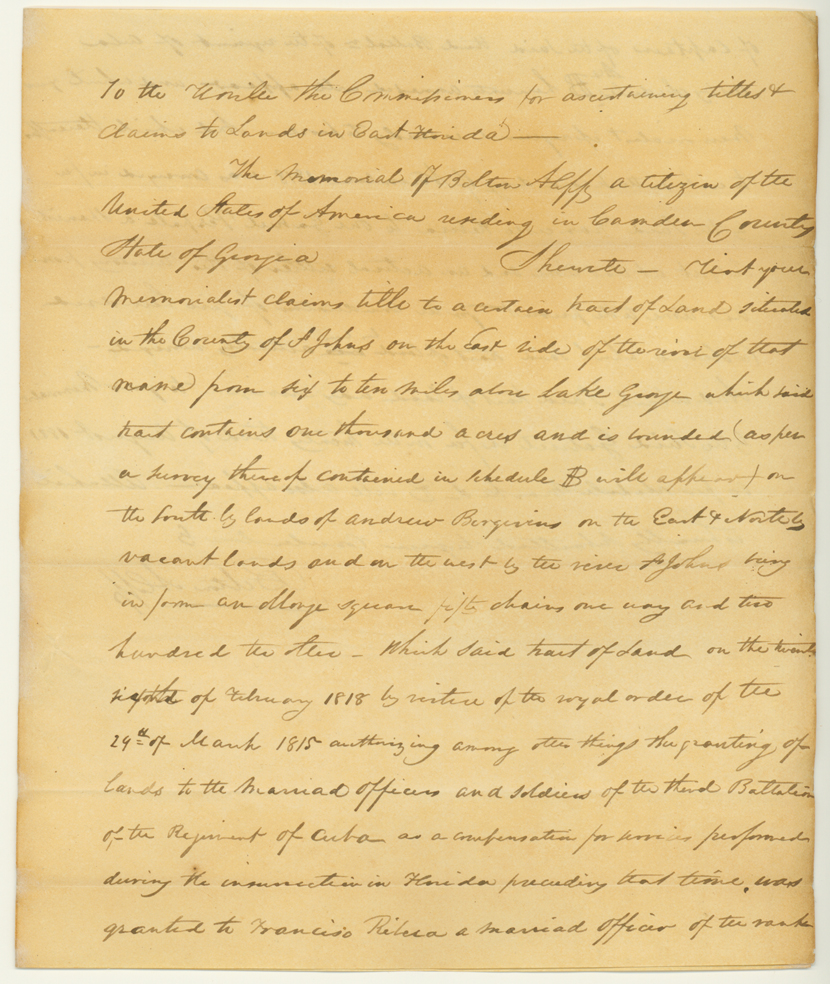 To the Honble the Commissioners for ascertaining titles &
claims to Lands in East Florida —
The Memorial of Bolton A citizen of the
United States of America residing in Camden County
State of Georgia Sheweth — That your
Memorialist claims title to a certain tract of Land situated
in the County of St Johns on the East side of the river of that
name from six to ten miles above Lake George which said
tract contains one thousand acres and is bounded (as per
a survey thereof contained in schedule B will appear) on
the South by lands of Andrew on the East & North by
vacant lands and on the west by the river St Johns being
in form an square fifty chains one way and two
hundred the other — Which said tract of Land on the twenty
sixth of February 1818 by virtue of the royal order of the
29th of March 1815 authorizing among other things the granting of
lands to the Marriad Officers and soldiers of the third Battalion
of the Regiment of Cuba as a compensation for services performed
during the insurrection in Florida preceding that time, was
granted to Francisco Ribera a Marriad Officer of the rank